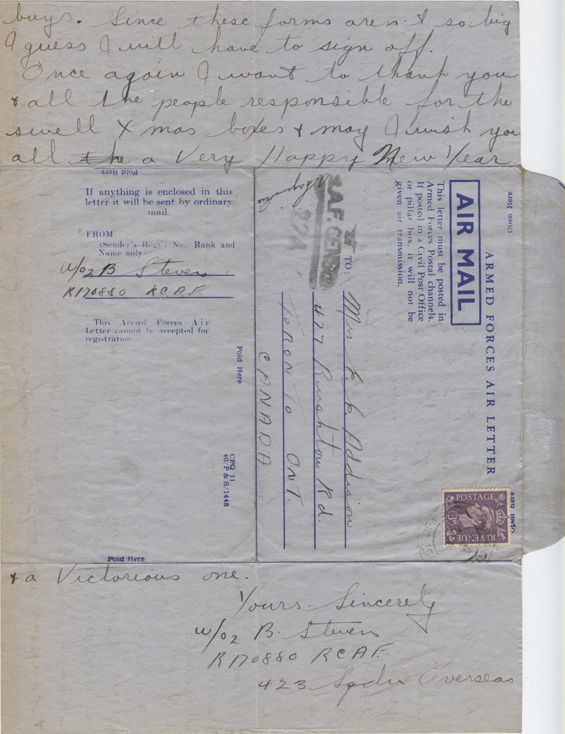 buys. Since these forms aren't so big
I guess I will have to sign off.
Once again I want to thank you
& all the people responsible for the
swell Xmas boxes & may I wish you
all the a Very Happy New Year
Fold Here
If anything is enclosed in this
letter it will be sent by ordinary
mail.
FROM
(Sender's Regtl. No., Rank and
Name only)
W/O2 B Steven
R170880 RCAF
This Armed Forces Air
Letter cannot be accepted for
registration
Fold Here
CPQ 11
40 P & S/1448
Fold Here
Open Here
ARMED FORCES AIR LETTER
AIR MAIL
This letter must be posted in
Armed Forces Postal channels.
If posted in a Civil Post Office
or pillar box, it will not be
given air transmission.
R.A.F. CENSOR
224
TO:
Addison
477 Rushton Rd.
TORONTO ONT.
CANADA
Open Here
POSTAGE
REVENUE
& a Victorious one.
Yours Sincerely
W/O2 B. Steven
R170880 RCAF.
423 Sqdn Overseas